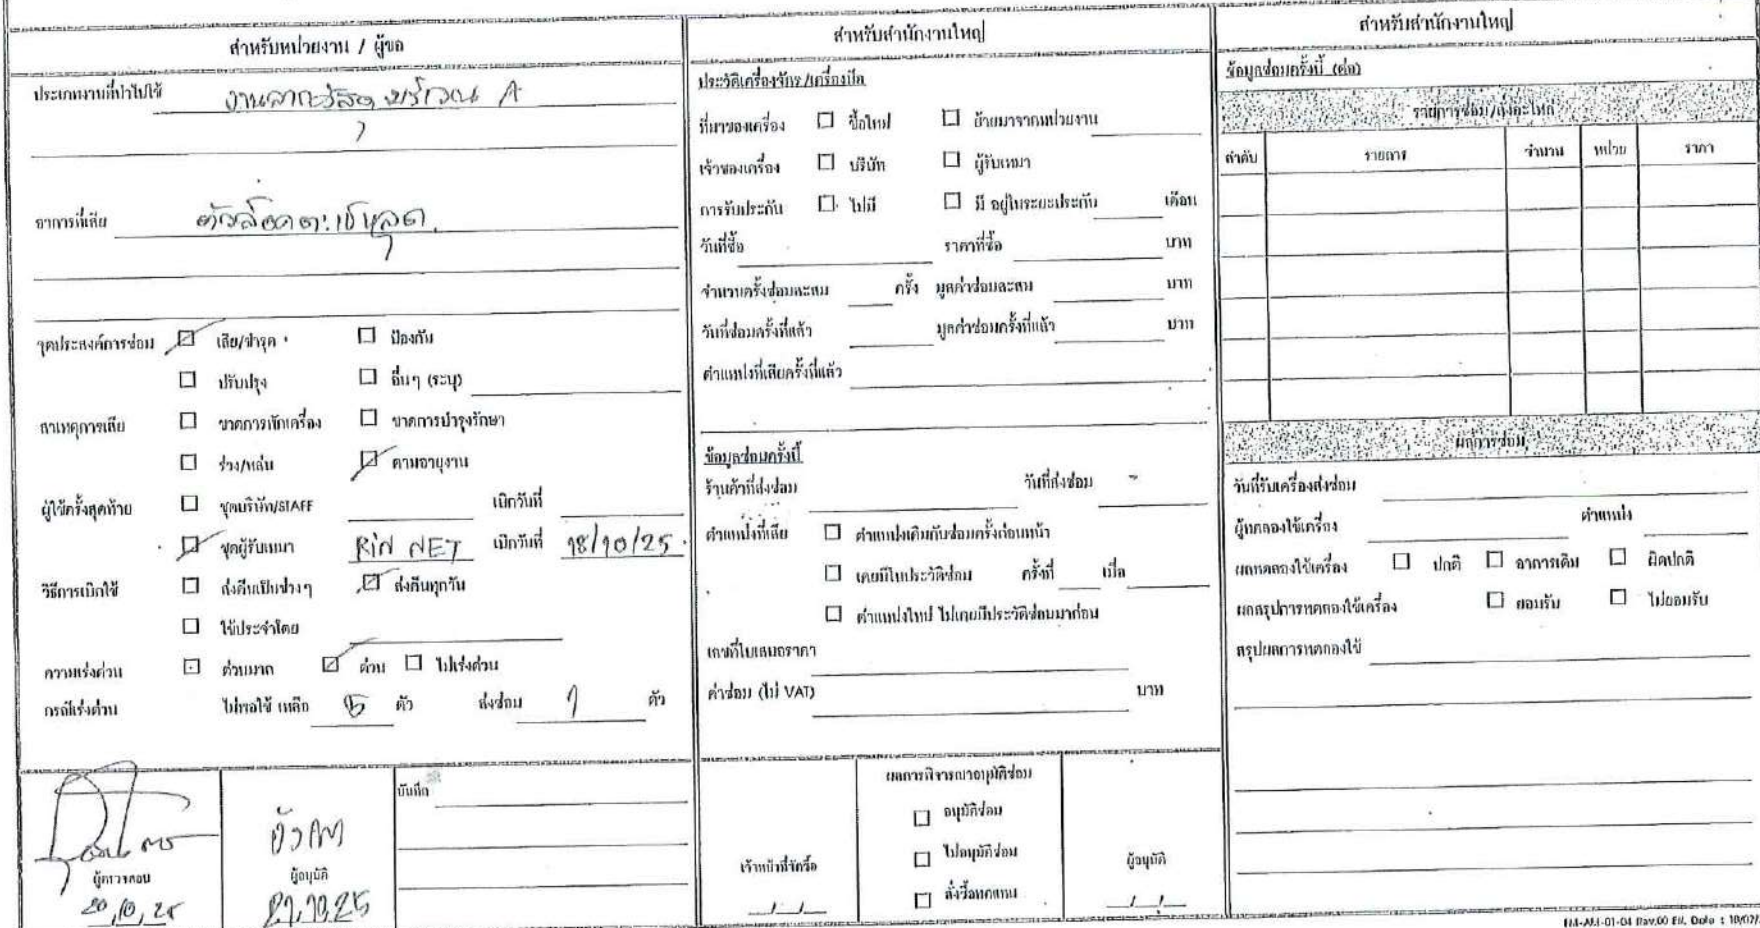 สำหรับหน่วยงาน / ผู้ขอ
ประเภทงานที่นำไปใช้ งานลากวัสดุ บริเวณ A
อาการที่เสีย ตัวล็อคตะเข้หลุด
จุดประสงค์การซ่อม ☑ เสีย/ชำรุด ☐ ป้องกัน
☐ ปรับปรุง ☐ อื่นๆ (ระบุ)
สาเหตุการเสีย ☐ ขาดการเช็กเครื่อง ☐ ขาดการบำรุงรักษา
☐ ร่วง/หล่น ☑ ตามอายุงาน
ผู้ใช้ครั้งสุดท้าย ☐ ชุดบริษัท/STAFF เบิกวันที่
☑ ชุดผู้รับเหมา RIN NET เบิกวันที่ 18/10/25
วิธีการเบิกใช้ ☐ ส่งคืนเป็นช่วงๆ ☑ ส่งคืนทุกวัน
☐ ใช้ประจำโดย
ความเร่งด่วน ☐ ด่วนมาก ☑ ด่วน ☐ ไม่เร่งด่วน
กรณีเร่งด่วน ไม่พอใช้ เหลือ 5 ตัว ส่งซ่อม 1 ตัว
ผู้ตรวจสอบ
20/10/25
ผู้อนุมัติ
21.10.25
บันทึก
สำหรับสำนักงานใหญ่
ประวัติเครื่องจักร/เครื่องมือ
ที่มาของเครื่อง ☐ ซื้อใหม่ ☐ ย้ายมาจากหน่วยงาน
เจ้าของเครื่อง ☐ บริษัท ☐ ผู้รับเหมา
การรับประกัน ☐ ไม่มี ☐ มี อยู่ในระยะประกัน เดือน
วันที่ซื้อ ราคาที่ซื้อ บาท
จำนวนครั้งซ่อมสะสม ครั้ง มูลค่าซ่อมสะสม บาท
วันที่ซ่อมครั้งที่แล้ว มูลค่าซ่อมครั้งที่แล้ว บาท
ตำแหน่งที่เสียครั้งที่แล้ว
ข้อมูลซ่อมครั้งนี้
ร้านค้าที่ส่งซ่อม วันที่ส่งซ่อม
ตำแหน่งที่เสีย ☐ ตำแหน่งเดิมกับซ่อมครั้งก่อนหน้า
☐ เคยมีในประวัติซ่อม ครั้งที่ เมื่อ
☐ ตำแหน่งใหม่ ไม่เคยมีประวัติซ่อมมาก่อน
เลขที่ใบเสนอราคา
ค่าซ่อม (ไม่ VAT) บาท
เจ้าหน้าที่จัดซื้อ
ผลการพิจารณาอนุมัติซ่อม
☐ อนุมัติซ่อม
☐ ไม่อนุมัติซ่อม
☐ สั่งซื้อทดแทน
ผู้อนุมัติ
สำหรับสำนักงานใหญ่
ข้อมูลซ่อมครั้งนี้ (ต่อ)
รายการซ่อม/สั่งอะไหล่
ลำดับ รายการ จำนวน หน่วย ราคา
ผลการซ่อม
วันที่รับเครื่องส่งซ่อม
ผู้ทดลองใช้เครื่อง ตำแหน่ง
ผลทดลองใช้เครื่อง ☐ ปกติ ☐ อาการเดิม ☐ ผิดปกติ
ผลสรุปการทดลองใช้เครื่อง ☐ ยอมรับ ☐ ไม่ยอมรับ
สรุปผลการทดลองใช้